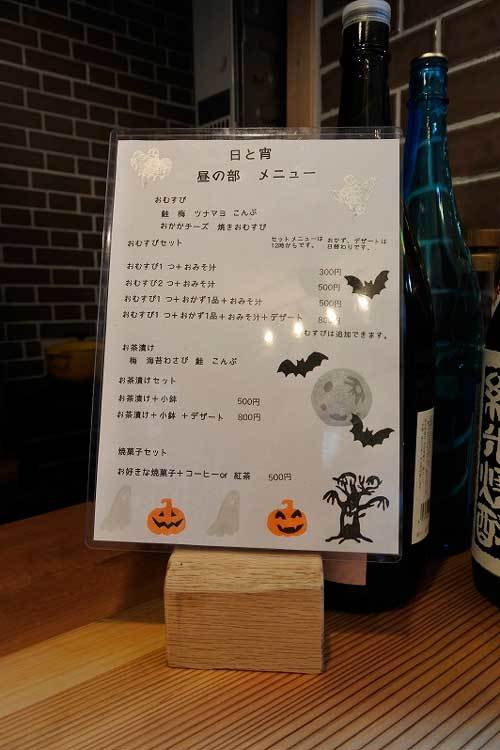 日と宵
昼の部 メニュー
おむすび
鮭 梅 ツナマヨ こんぶ
おかかチーズ 焼きおむすび
おむすびセット
セットメニューは
12時からです。
おかず、デザートは
日替わりです。
おむすび1つ+おみそ汁 300円
おむすび2つ+おみそ汁 500円
おむすび1つ+おかず1品+おみそ汁 500円
おむすび1つ+おかず1品+おみそ汁+デザート
むすびは追加できます。
お茶漬け
梅 海苔わさび 鮭 こんぶ
お茶漬けセット
お茶漬け+小鉢 500円
お茶漬け+小鉢+デザート 800円
焼菓子セット
お好きな焼菓子+コーヒーor 紅茶 500円